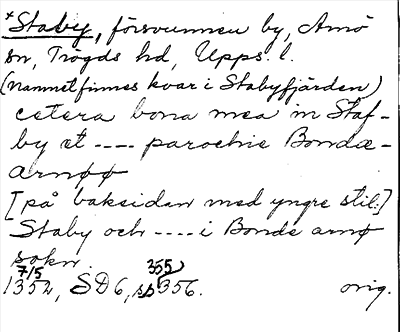 *Staby, försvunnen by, Arnö
sn, Trögds hd, Upps. l.
(namnet finnes kvar i Stabyfjärden)
cetera bona mea in Staf-
by et ---- parochie Bondæ-
arnøø
[på baksidan med yngre stil:]
Staby och ---- i Bonde arnø
sokn.
7/5 1352, SD 6, sp 355, 356. orig.